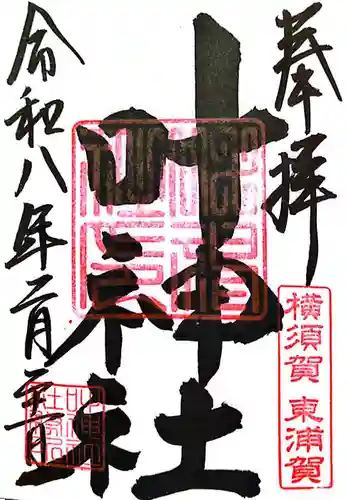 奉拝
横須賀 東浦賀
叶神社
令和八年二月